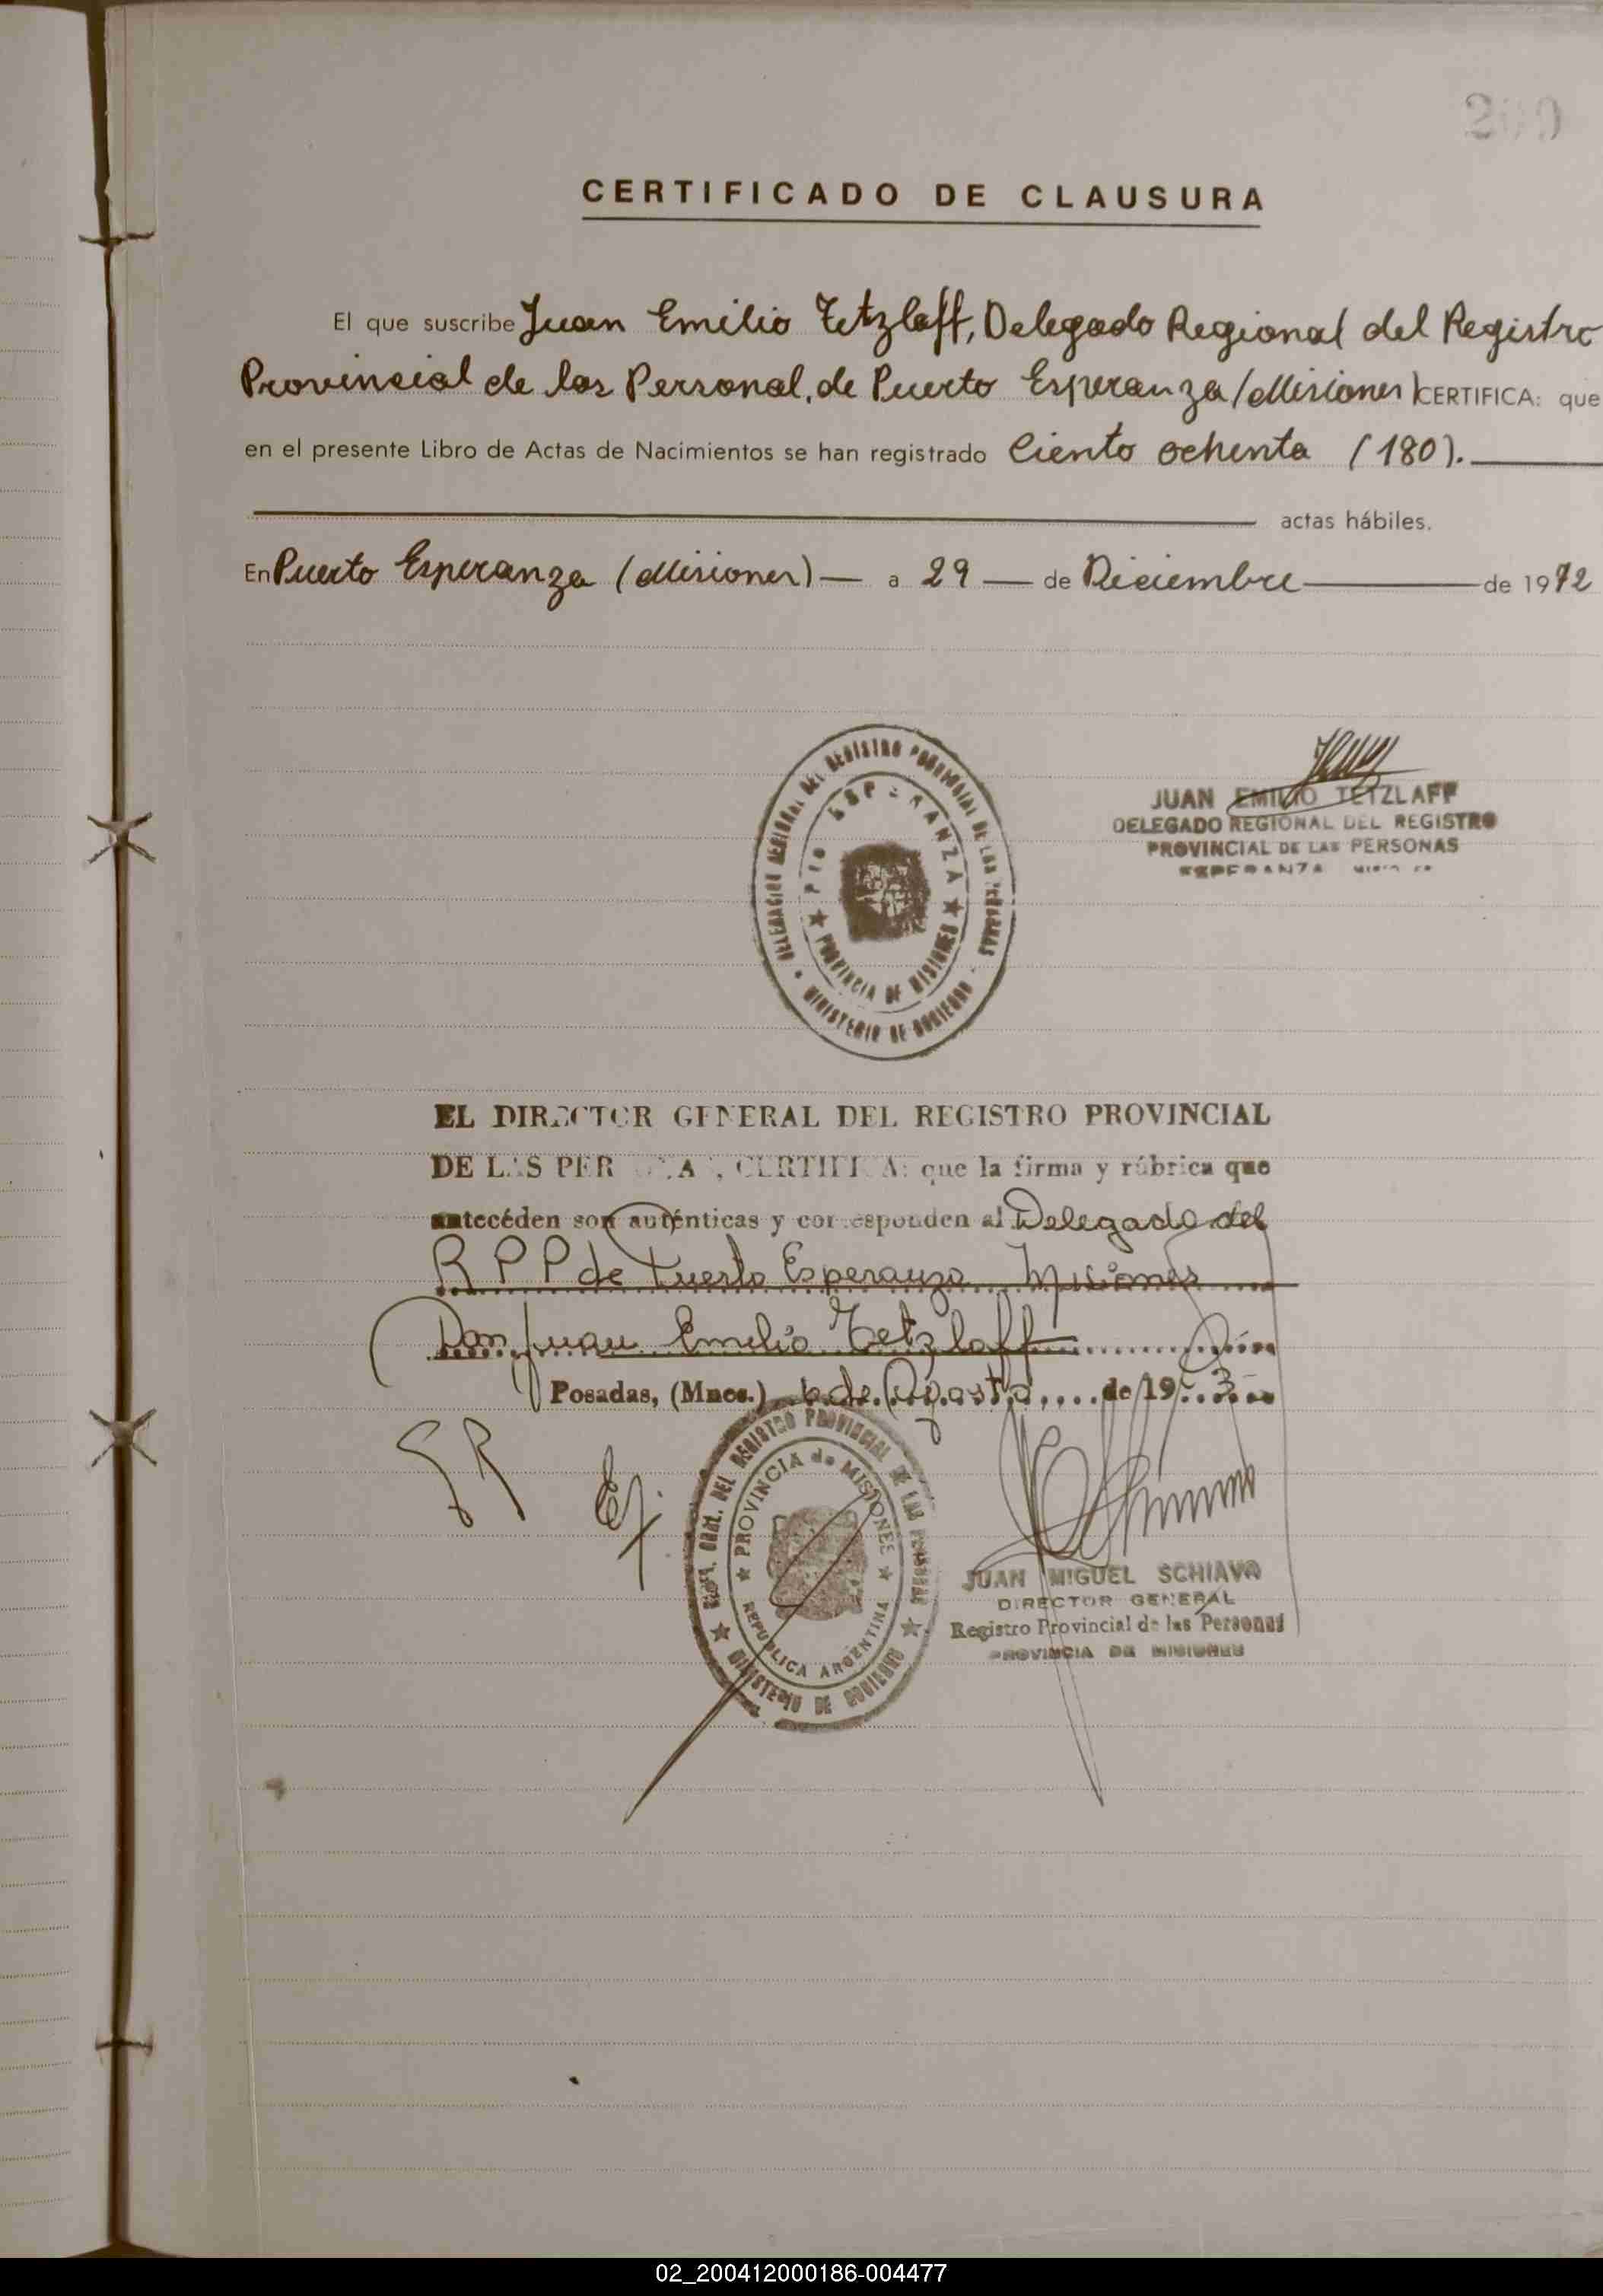 200
CERTIFICADO DE CLAUSURA
El que suscribe Juan Emilio Tetzlaff, Delegado Regional del Registro
Provincial de las Personas, de Puerto Esperanza (Misiones) CERTIFICA: que
en el presente Libro de Actas de Nacimientos se han registrado Ciento ochenta (180).
actas hábiles.
En Puerto Esperanza (Misiones) — a 29 — de Diciembre — de 1972
DELEGACION REGIONAL DEL REGISTRO PROVINCIAL DE LAS PERSONAS
MINISTERIO DE GOBIERNO
PTO ESPERANZA
PROVINCIA DE MISIONES
JUAN EMILIO TETZLAFF
DELEGADO REGIONAL DEL REGISTRO
PROVINCIAL DE LAS PERSONAS
ESPERANZA
EL DIRECTOR GENERAL DEL REGISTRO PROVINCIAL
DE LAS PERSONAS, CERTIFICA: que la firma y rúbrica que
antecéden son auténticas y corresponden al Delegado del
R P P de Puerto Esperanza Misiones
Don Juan Emilio Tetzlaff
Posadas, (Mnes.) 6 de Agosto de 19 3
GRAL. DEL REGISTRO PROVINCIAL DE LAS PERSONAS
MINISTERIO DE GOBIERNO
PROVINCIA de MISIONES
REPUBLICA ARGENTINA
JUAN MIGUEL SCHIAVO
DIRECTOR GENERAL
Registro Provincial de las Personas
PROVINCIA DE MISIONES
02_200412000186-004477